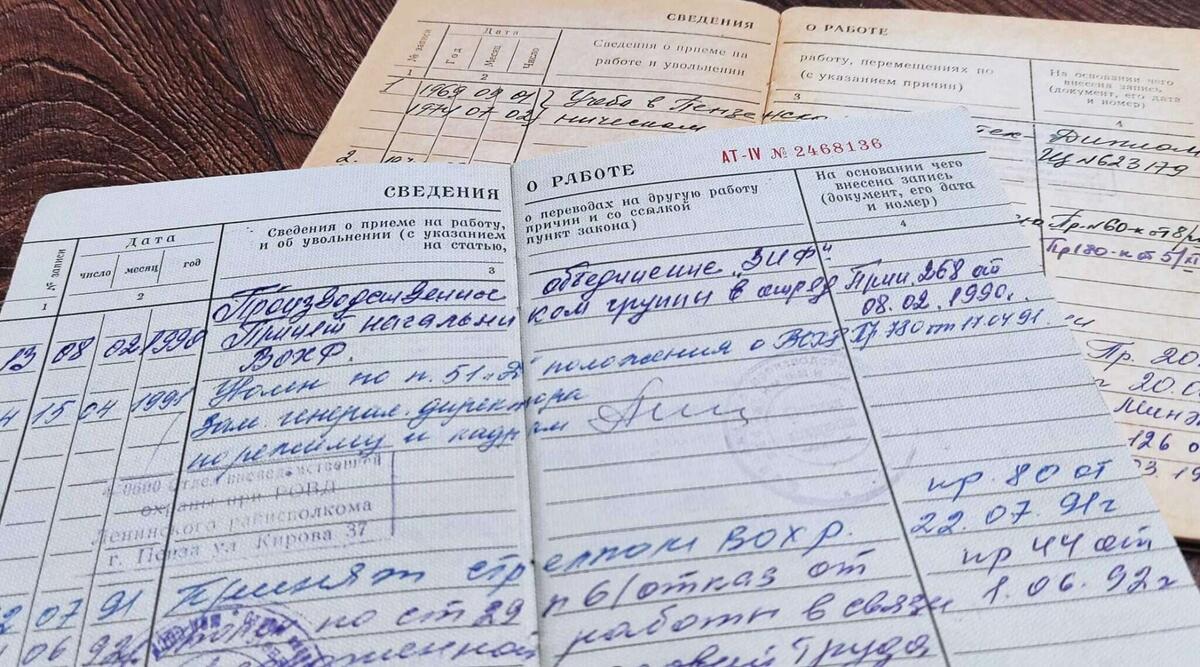 СВЕДЕНИЯ
О РАБОТЕ
№ записи
Дата
Год
Месяц
Число
Сведения о приеме на
работе и увольнении
работу, перемещениях по
(с указанием причин)
На основании чего
внесена запись
(документ, его дата
и номер)
1
2
3
4
1
1969 09 01
Учеба в Пензенск
Диплом
1974 07 02
ническом
тех-
Щ №623179
2.
Пр. №60-к от 8/
Пр180-к от 5/
Пр. 20
20.0
Минз
126 о
03.19
АТ-IV № 2468136
СВЕДЕНИЯ
О РАБОТЕ
№ записи
Дата
число
месяц
год
Сведения о приеме на работу,
и об увольнении (с указанием
на статью,
о переводах на другую работу
причин и со ссылкой
пункт закона)
На основании чего
внесена запись
(документ, его дата
и номер)
1
2
3
4
Производственное
объединение „ЗИФ"
13 08 02 1990
Принят начальни
ком группы в отряд
Прик. 268 от
ВОХР.
08.02.1990г.
4 15 04 1991
Уволен по п. 51 „Д"
положения о ВОХР
Пр 780 от 17.04 91.
Зам. генерал. директора
по режиму и кадрам
Отдел вневедственной
охраны при РОВД
Ленинского райисполкома
г. Пенза ул Кирова 37
пр. 80 от
2 07 91
Принят стрелком ВОХР.
22.07.91г
06 92
по ст 29
п 6/отказ от
пр 44 от
работы в связи
1.06.92г
Труда